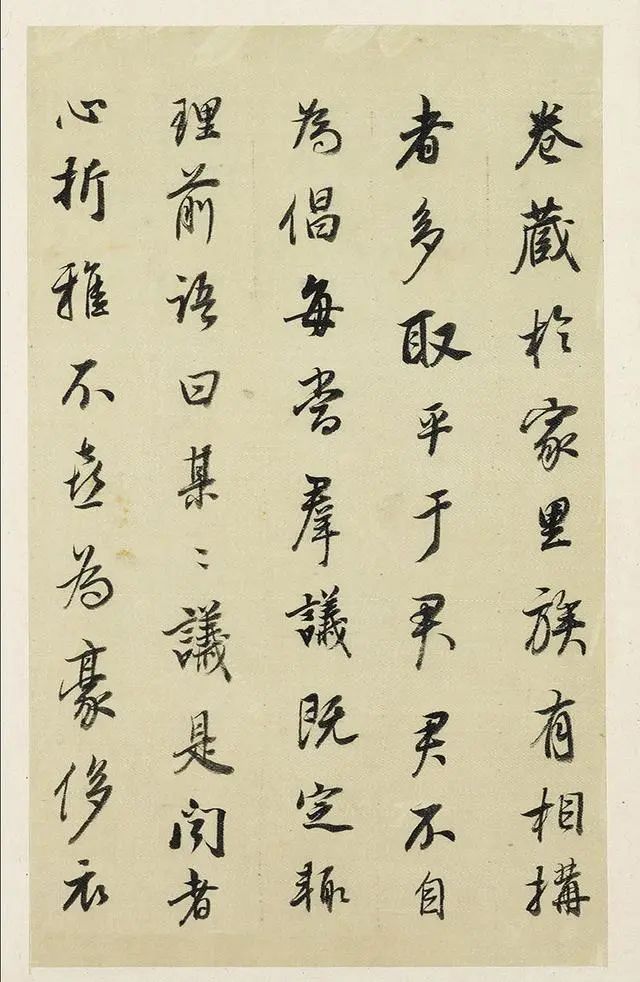 卷蔵於家里族有相搆
者多取平于君君不自
為倡每當羣議既定輙
理前語曰某〻議是聞者
心折雅不喜為豪侈衣